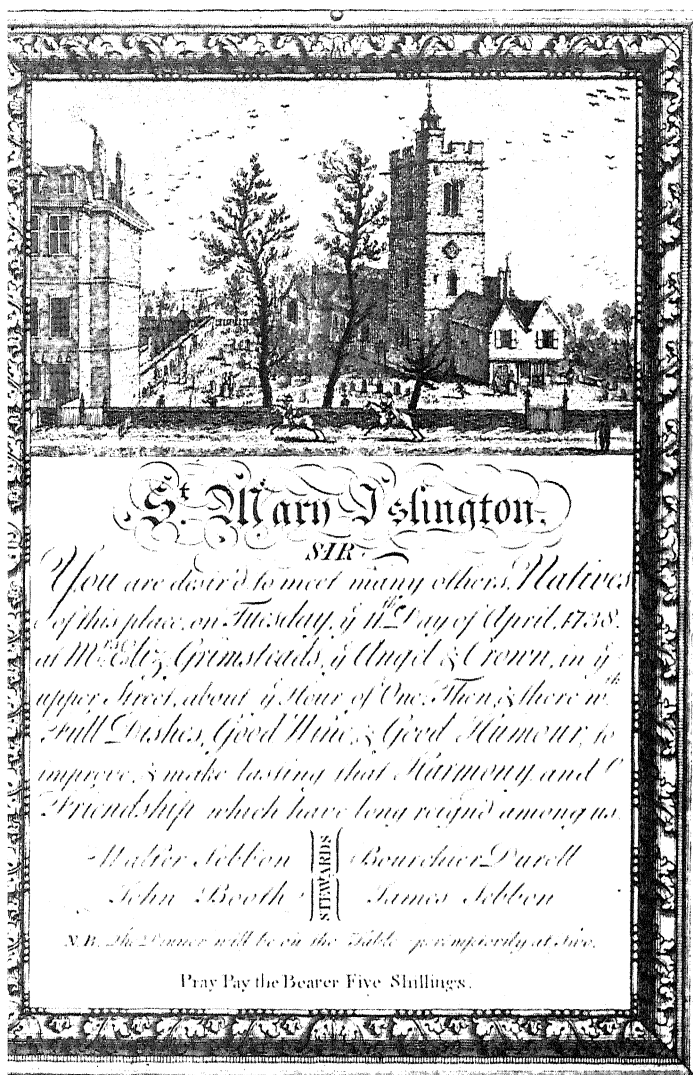 St. Mary Islington.
SIR
You are desir'd to meet many others, Natives
of this place, on Tuesday, ye 11th Day of April, 1738.
at Mrs. Eliz. Grimsteads, ye Angel & Crown, in ye
upper Street, about ye Hour of One. Then, & there wth
Full Dishes, Good Wine, & Good Humour, to
improve, & make lasting that Harmony and
Friendship which have long reign'd among us.
Walter Sebbon STEWARDS Bourchier Durell
John Booth James Sebbon
N.B. The Dinner will be on the Table peremptorily at Two.
Pray Pay the Bearer Five Shillings.